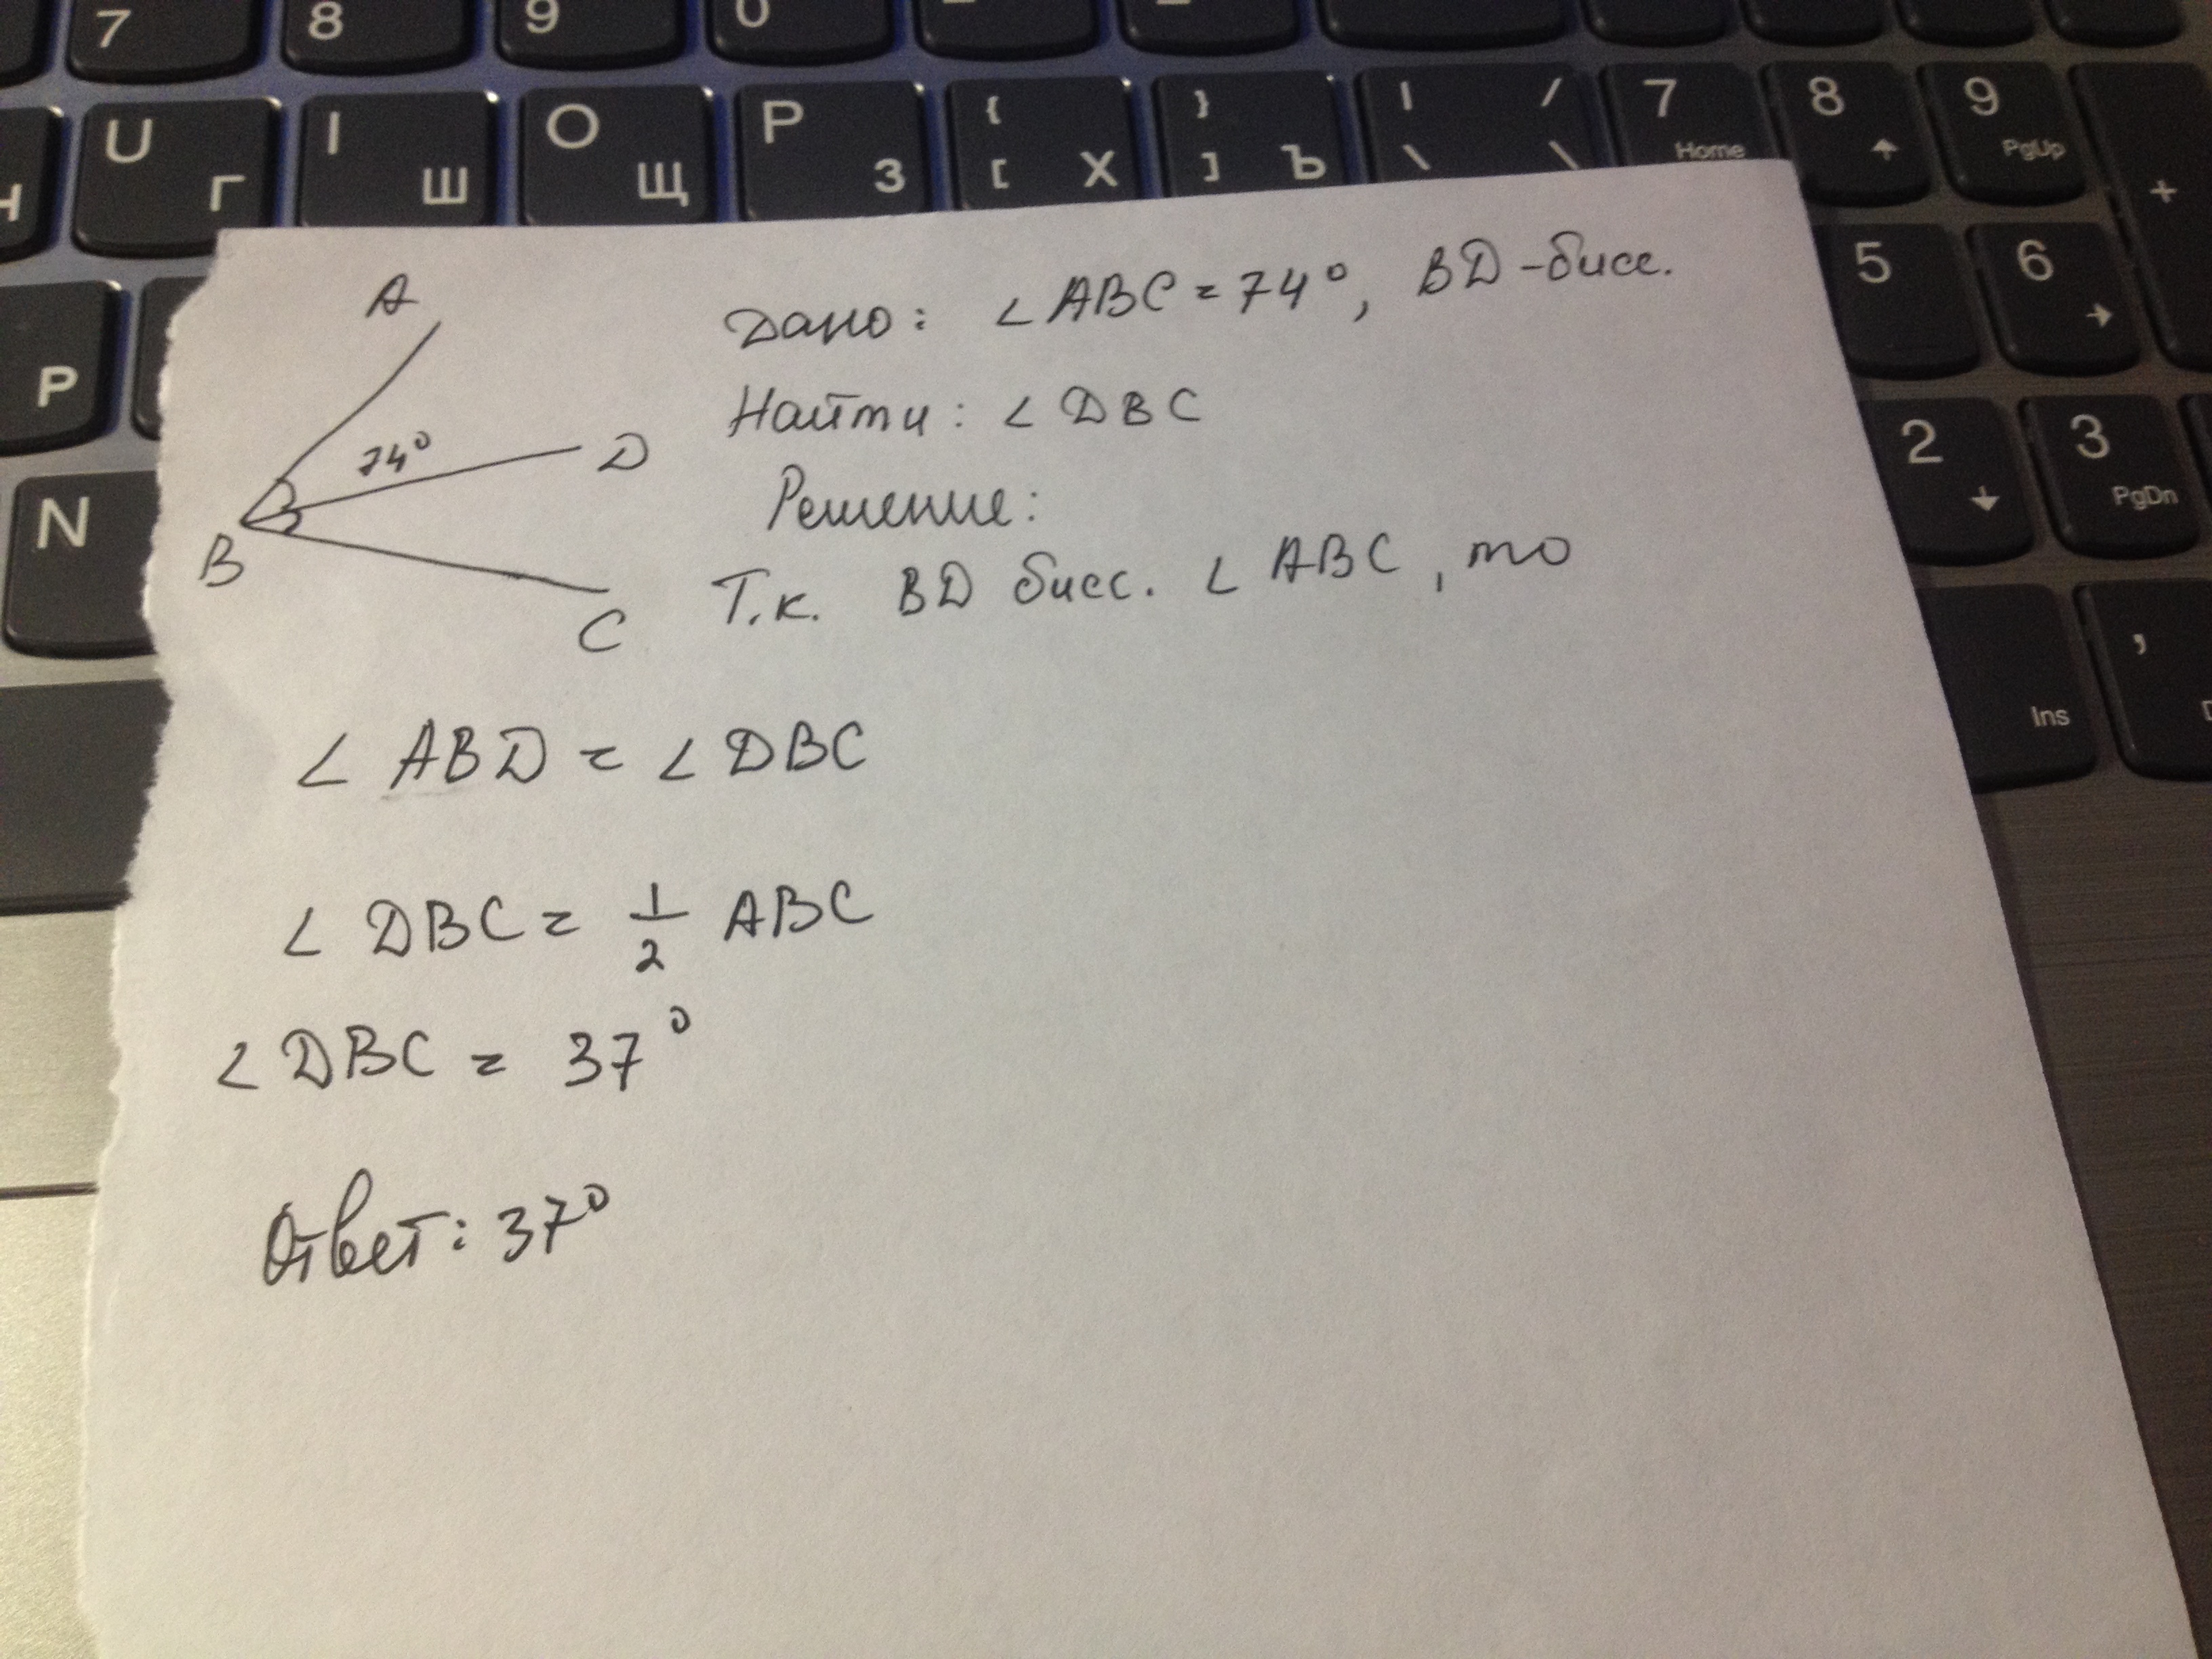 7 8 9 0
U Г I Ш O Щ P З { [ Х } ] Ъ | \ / \ 7 Home 8 9 PgUp +
Р 5 6
N 2 3 PgDn
Ins ,
A
74°
D
B
C
Дано: ∠ABC = 74°, BD - бисс.
Найти: ∠DBC
Решение:
Т.к. BD бисс. ∠ABC, то
∠ABD = ∠DBC
∠DBC = 1/2 ABC
∠DBC = 37°
Ответ: 37°